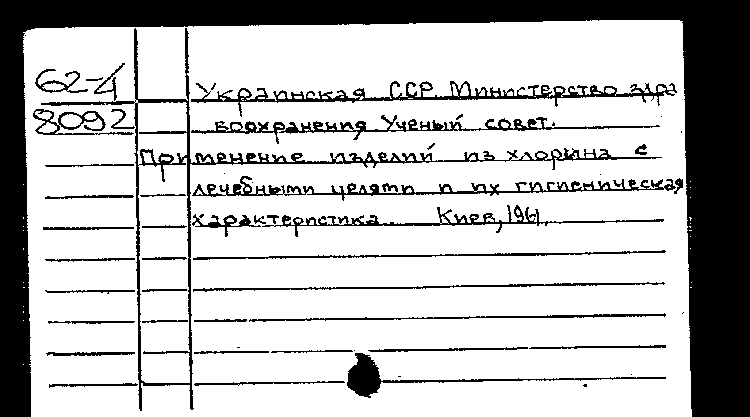 62-4
8092
Украинская ССР. Министерство здра
воохранения Ученый совет.
Применение изделий из хлорина с
лечебными целями и их гигиеническая
характеристика. Киев, 1961.